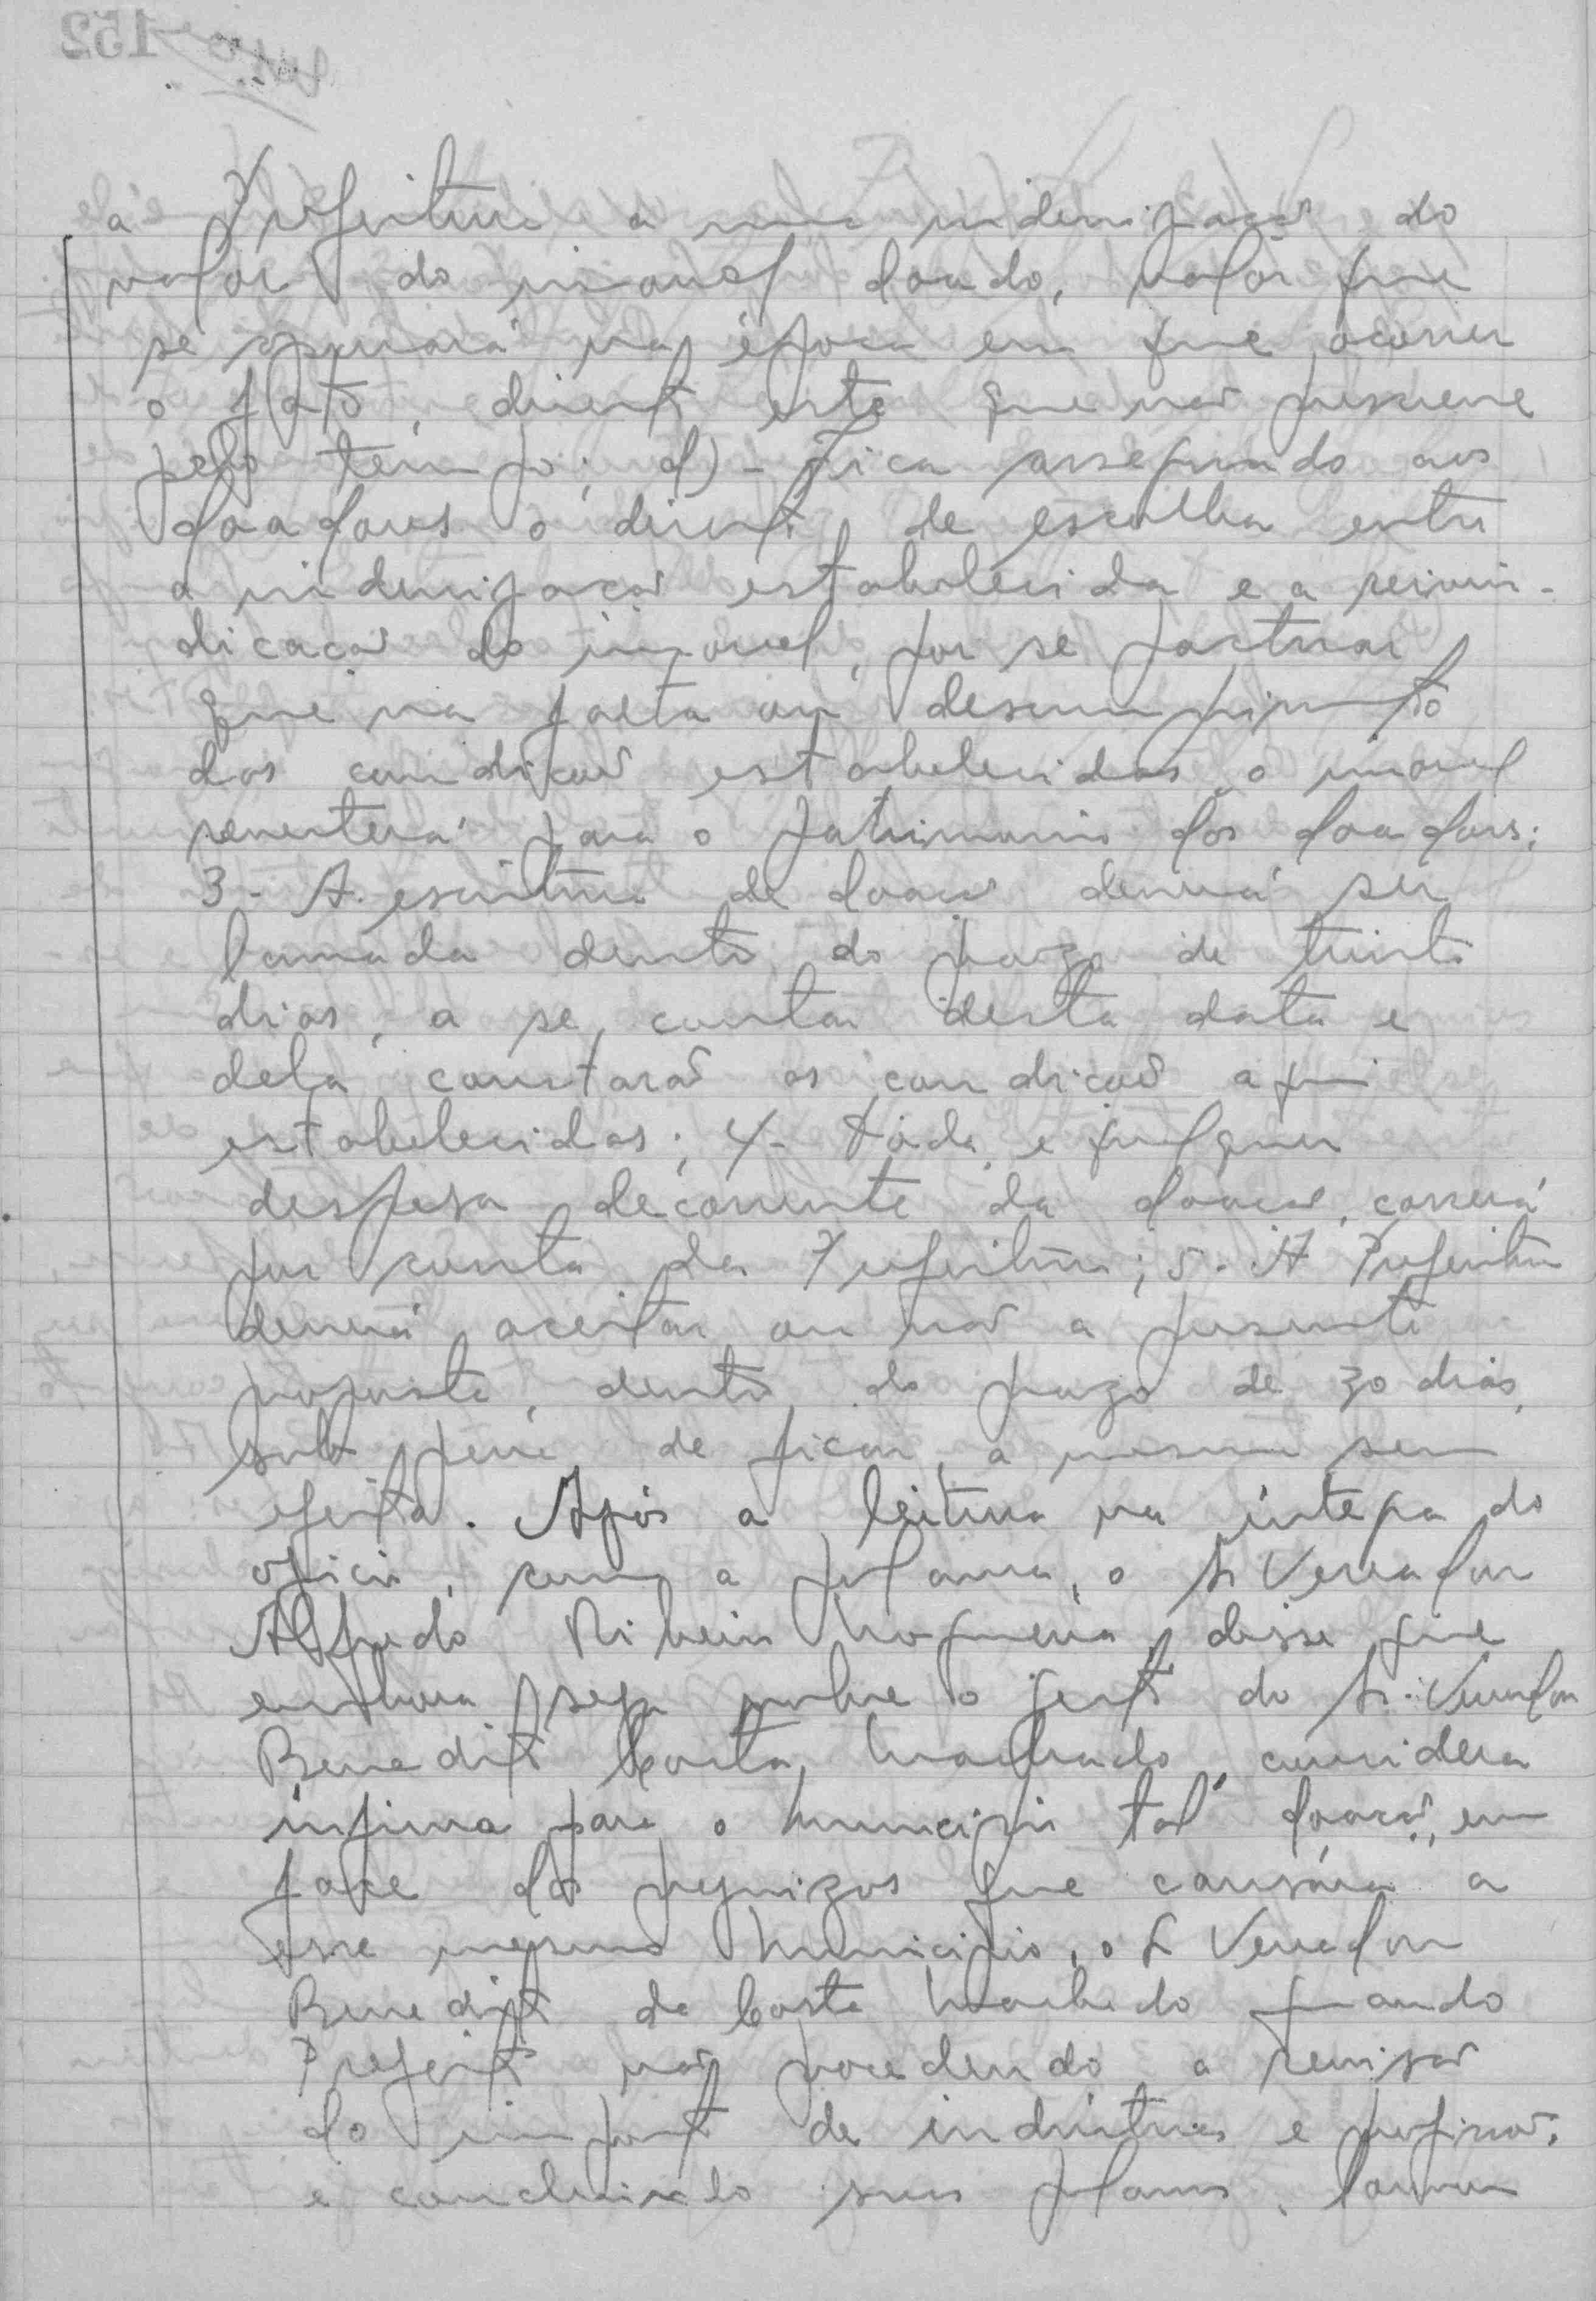 a Prefeitura a uma indenização do
valor do imovel doado, valor que
se apurará na época em que ocorrer
o fato, direito este que não prescreve
pelo tempo; d) - Fica assegurado aos
doadores o direito de escolha entre
a indenização estabelecida e a reivin-
dicação do imovel, por se pactuar
que na falta ou descumprimento
das condições estabelecidas o imovel
reverterá para o patrimonio dos doadores;
3 - A escritura de doação deverá ser
lavrada dentro do prazo de trinta
dias, a se contar desta data e
dela constarão as condições aqui
estabelecidas; 4 - Toda e qualquer
despesa decorrente da doação, correrá
por conta da Prefeitura; 5 - A Prefeitura
deverá aceitar ou não a presente
proposta, dentro do prazo de 30 dias,
sob pena de ficar a mesma sem
efeito. Após a leitura na íntegra do
oficio, com a palavra, o Sr Vereador
Alfredo Ribeiro Nogueira, disse que
embora seja nobre o gesto do Sr. Vereador
Benedito Costa Machado, considera
ínfima para o municipio tal doação, em
face dos prejuizos que causára a
esse mesmo Municipio, o Sr Vereador
Benedito da Costa Machado quando
Prefeito não procedendo a revisão
do imposto de indústrias e profissões;
e concluindo suas palavras, louvou